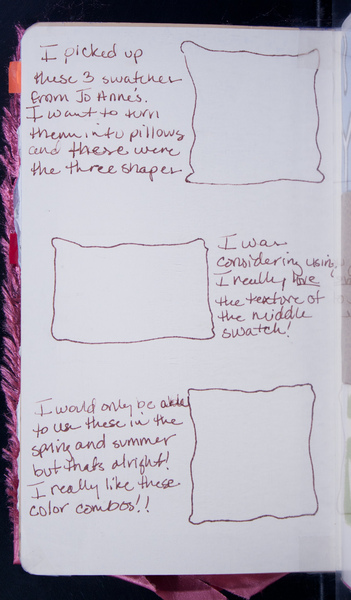 I picked up
these 3 swatches
from Jo Anne's.
I want to turn
them into pillows
and these were
the three shapes
I was
considering using,
I really love
the texture of
the middle
swatch!
I would only be able
to use these in the
spring and summer
but thats alright!
I really like these
color combos!!